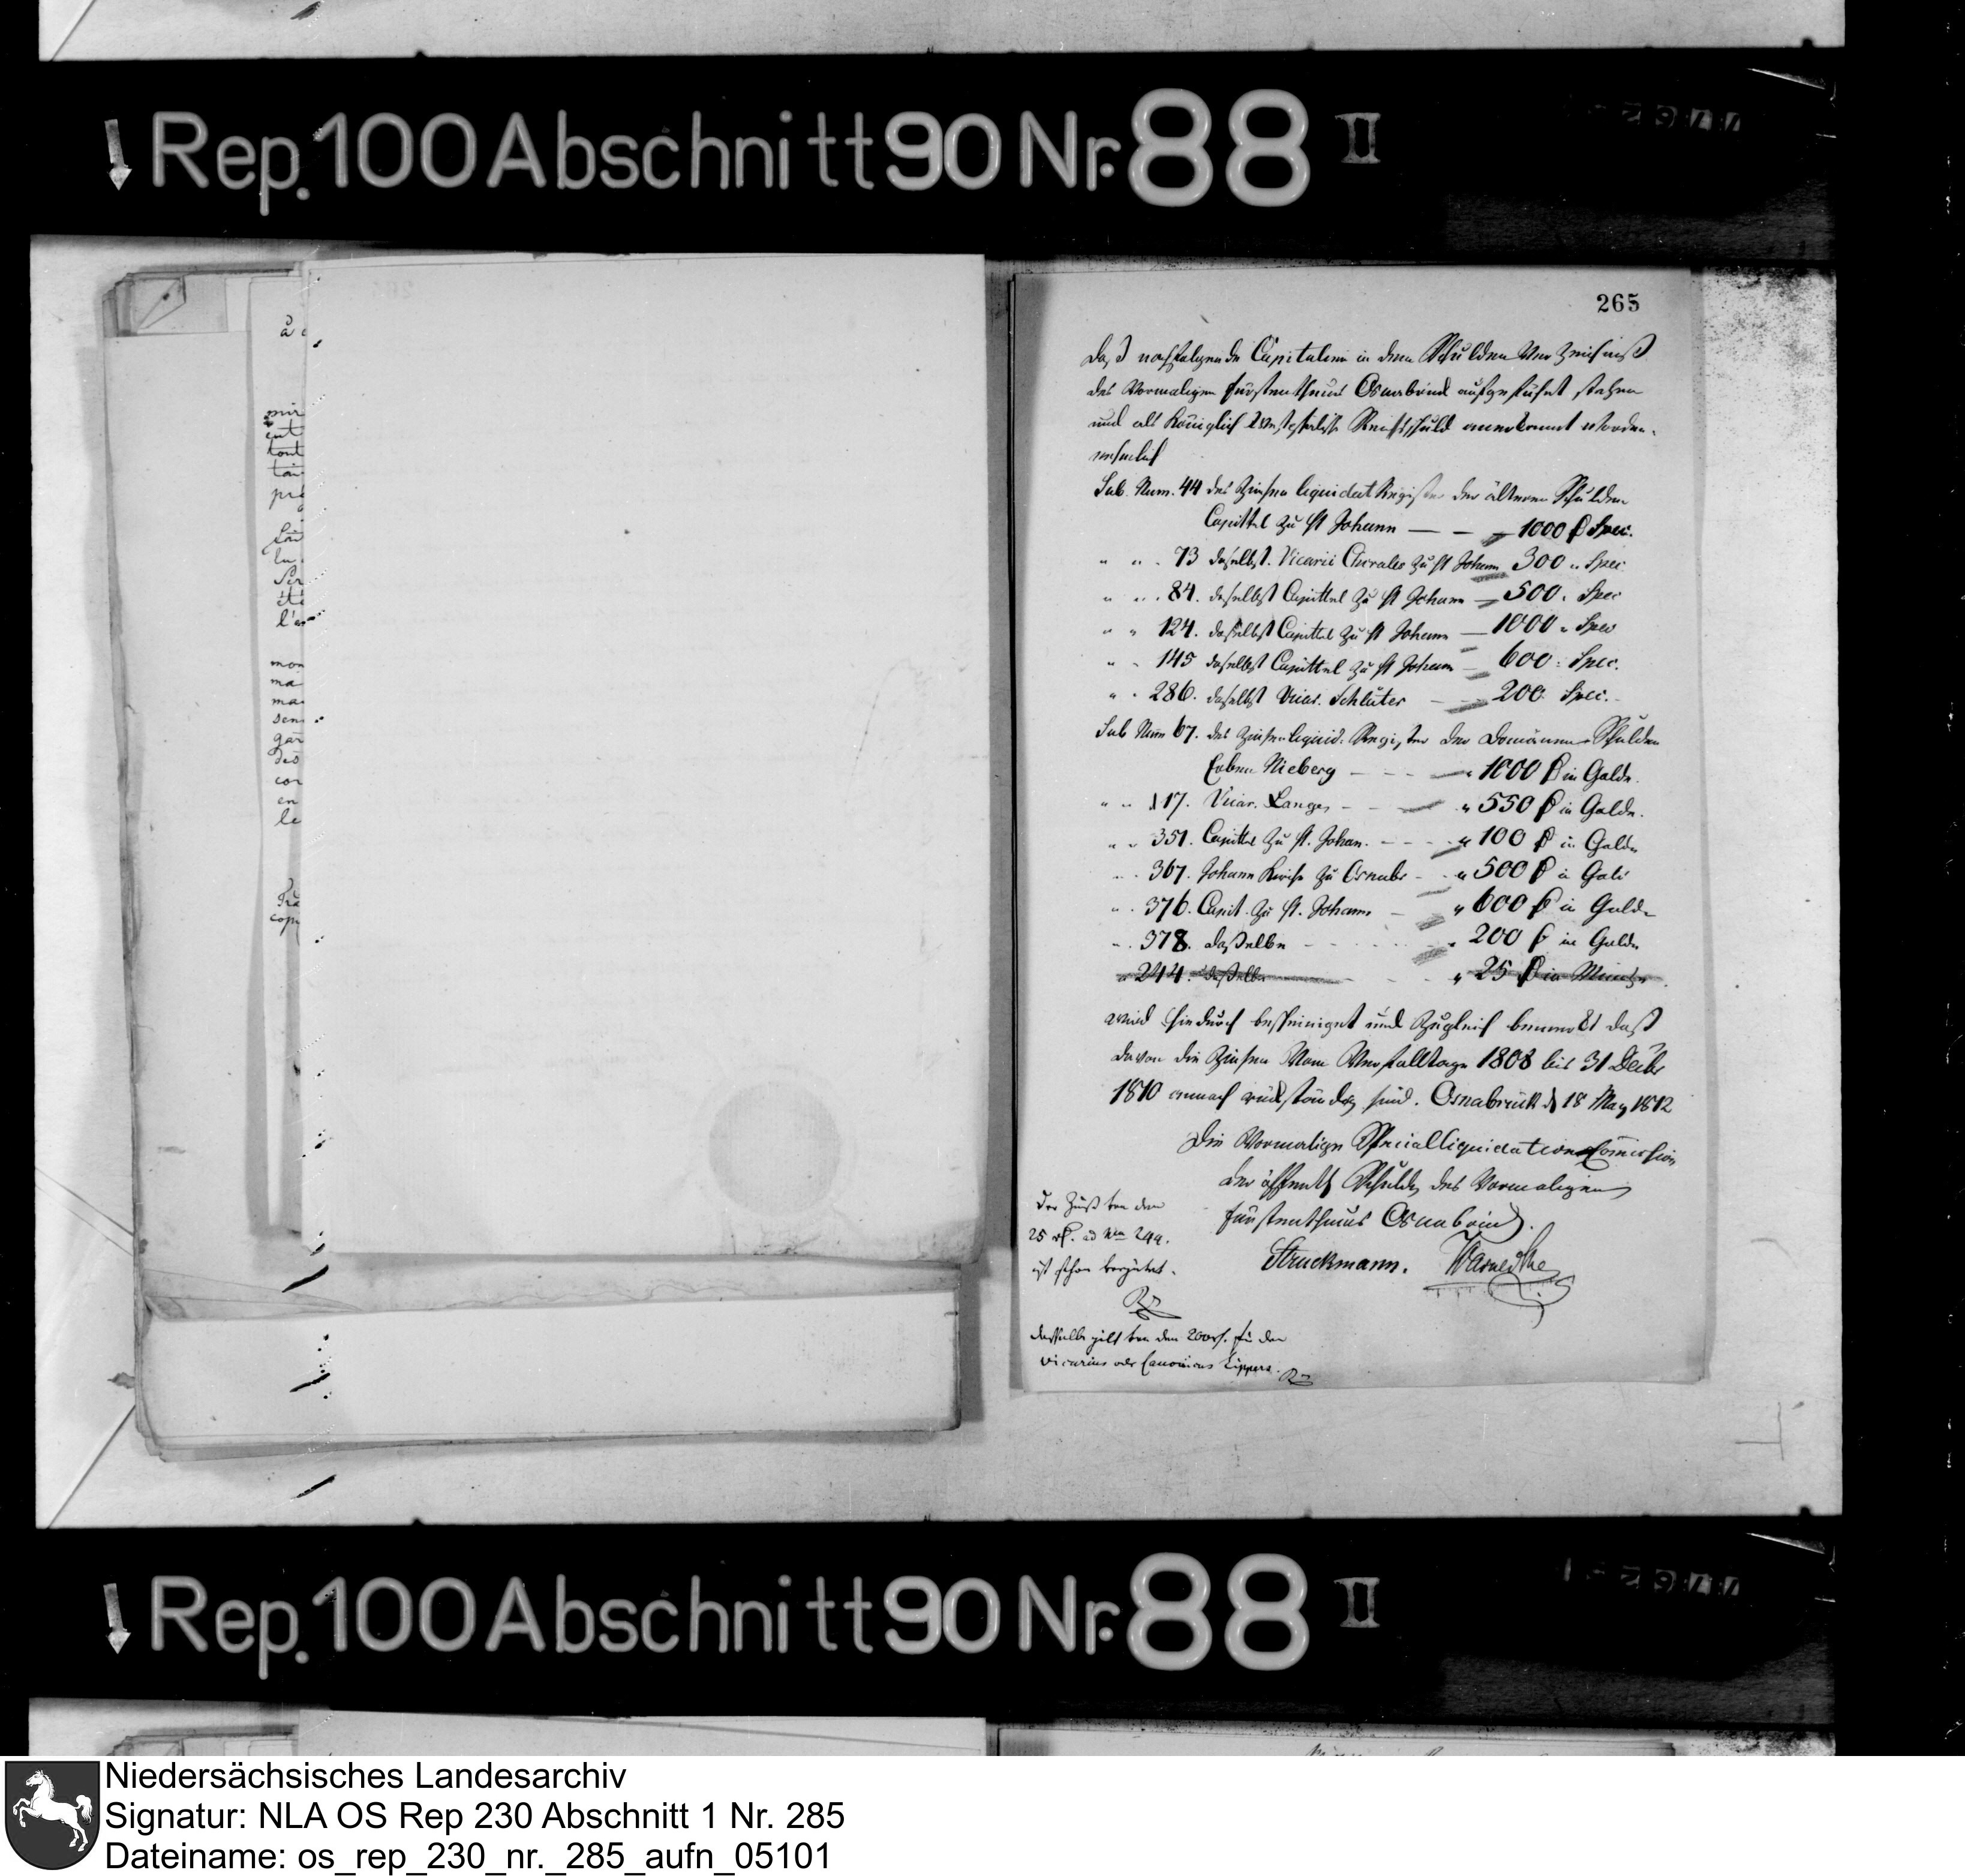 Rep. 100 Abschnitt 90 Nr. 88 II
265
daß nachfolgende Capitalien in dem Schulden Verzeichniß
des Vormaligen Fürstenthums Osnabrück aufgeführt stehen
und als Königlich Westphälische Reichsschuld anerkannt worden.
nehmlich
Sub. Num. 44 des Zinsen liquidat Register der älteren Schulden
Capittel zu St Johann — — 1000 Spec.
" " . 73 daselbst. Vicarii Chorales zu St Johann 300 " Spec
" " . 84. daselbst Capittel zu St Johann — 500 " Spec
" " 124. daselbst Capittel zu St Johann — 1000 " Spec
" " 145 daselbst Capittel zu St Johann — 600 " Spec.
" " 286. daselbst Vicar. Schlüter — 200 Spec.
Sub Num 67. des Zinsen liquid. Register der Domänen Schulden
Erben Nieberg — - - — " 1000 in Golde.
" " 117. Vicar. Lange, - - — " 550 in Golde.
" " 351. Capittel zu St. Johan. - - - " 100 in Golde
" . 367. Johann Kirche zu Osnabr - " 500 in Gold
" . 376. Capit. zu St. Johann — " 600 in Golde
" . 378. daßelbe - - - - " 200 in Golde
" 244. daßelbe " 25 in Münze.
wird hiedurch bescheiniget und zugleich bemerkt daß
davon die Zinsen Vom Verfalltage 1808 bis 31 Decbr
1810 annoch rückständig sind. Osnabrück d 18 May 1812
Die Vormalige Special Liquidations Comission
der öffentl Schulden des Vormaligen
Fürstenthums Osnabrück.
Struckmann.
Der Zinß von den
25 rt. ad Num 244.
ist schon vergütet.
dasselbe gilt von den 200 rt. für den
Vicarius oder Canonicus Lippers.
mir
tout
ma
en
le
Rep. 100 Abschnitt 90 Nr. 88 II
Niedersächsisches Landesarchiv
Signatur: NLA OS Rep 230 Abschnitt 1 Nr. 285
Dateiname: os_rep_230_nr._285_aufn_05101